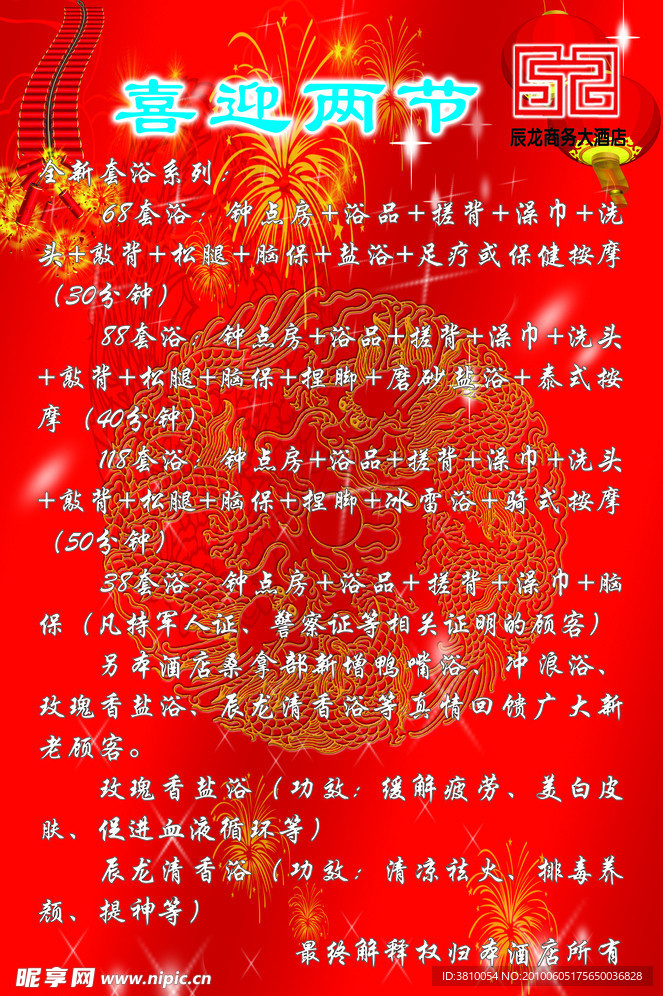 喜迎两节
辰龙商务大酒店
全新套浴系列：
68套浴：钟点房+浴品+搓背+澡巾+洗
头+敲背+松腿+脑保+盐浴+足疗或保健按摩
（30分钟）
88套浴：钟点房+浴品+搓背+澡巾+洗头
+敲背+松腿+脑保+捏脚+磨砂盐浴+泰式按
摩（40分钟）
118套浴：钟点房+浴品+搓背+澡巾+洗头
+敲背+松腿+脑保+捏脚+冰雷浴+骑式按摩
（50分钟）
38套浴：钟点房+浴品+搓背+澡巾+脑
保（凡持军人证、警察证等相关证明的顾客）
另本酒店桑拿部新增鸭嘴浴、冲浪浴、
玫瑰香盐浴、辰龙清香浴等真情回馈广大新
老顾客。
玫瑰香盐浴（功效：缓解疲劳、美白皮
肤、促进血液循环等）
辰龙清香浴（功效：清凉祛火、排毒养
颜、提神等）
最终解释权归本酒店所有
昵享网 www.nipic.cn
ID:3810054 NO:20100605175650036828